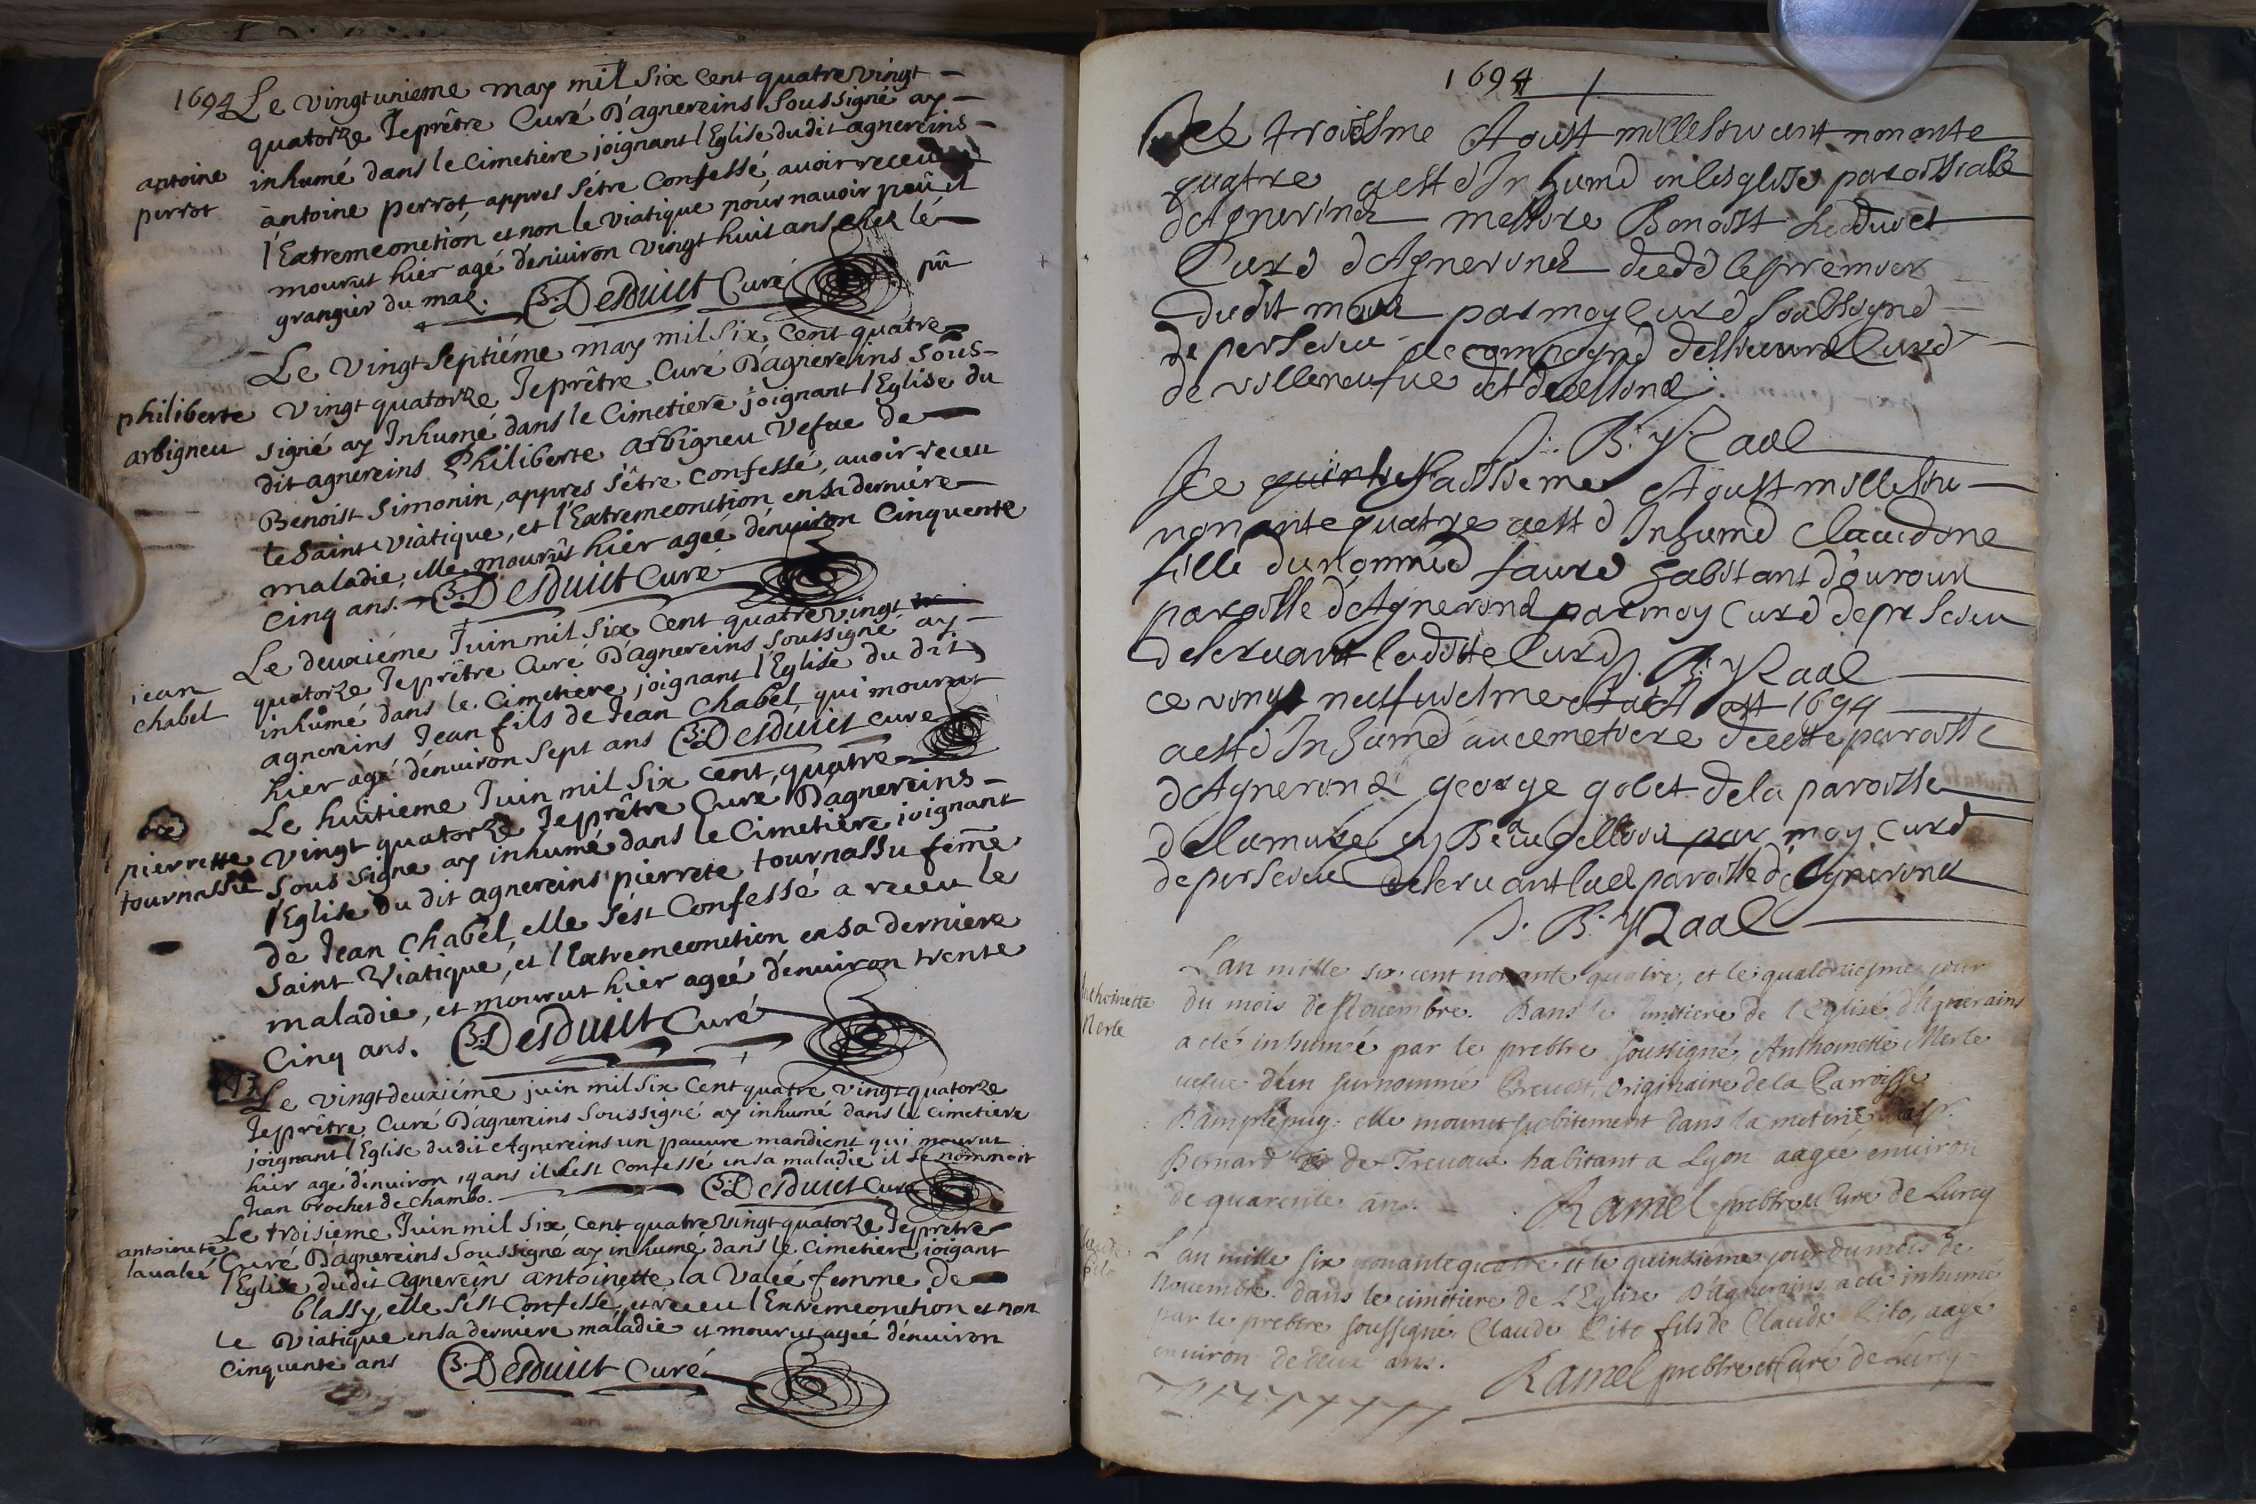 1694 Le vingtunieme may mil six cent quatre vingt
quatorze Je prêtre Curé D'agnereins soussigné ay
inhumé dans le cimetiere joignant l'Eglise du dit agnereins
antoine perrot
antoine perrot, appres sêtre Confessé, avoir receu
l'Extremeonction, et non le viatique pour navoir peû, il
mourut hier agé denuiron vingt huit ans, chez lé
grangier du mas. B: Desduict Curé
Le vingt Septiéme may mil six cent quatre
philiberte arbigneu
vingt quatorze Je prêtre Curé D'agnereins sous-
signé ay Inhumé dans le Cimetiere joignant l'Eglise du
dit agnereins Philiberte arbigneu Vefue de
Benoist Simonin, appres sêtre confessé, auoir receu
le saint viatique, et l'Extremeonction, en sa derniére
maladie, elle mourût hier ageé dénuiron Cinquente
Cinq ans. B: Desduict Curé
Le deuxiéme Juin mil six cent quatre vingt
jean chabel
quatorze Je prêtre Curé D'agnereins soussigné ay
inhumé dans le Cimetiere joignant l'Eglise du dit
agnereins Jean fils de Jean Chabel, qui mourut
hier agé dénuiron sept ans B: Desduict Curé
Le huitieme Juin mil six cent, quatre
pierrette tournassu
vingt quatorze Je prêtre Curé D'agnereins
sous signé ay inhumé dans le Cimetiére joignant
l'Eglise du dit agnereins pierrete tournassu feme
de Jean Chabel, elle sést Confessé a receu le
saint Viatique, et l'Extremeonction en sa derniere
maladie, et mourut hier ageé dénuiron trente
Cinq ans. B: Desduict Curé
Le vingtdeuxiéme juin mil six Cent quatre vingt quatorze
Je prêtre Curé D'agnereins soussigné ay inhumé dans le cimetiere
joignant l'Eglise du dit Agnereins un pauure mandient qui mourut
hier agé dénuiron 19 ans il sest confessé en sa maladie il se nommoit
Jean brochet de Chambo. B: Desduict Curé
Le troisieme Juin mil six cent quatre vingt quatorze Je prêtre
antoinete lavaleé
Curé D'agnereins soussigné ay inhumé dans le Cimetiere joigant
l'Eglise du dit agnereins antoinette la Valeé femme de
blassy, elle sést Confessé, et receu l'Extremeonction et non
le Viatique en sa derniere maladie et mourut ageé dénuiron
cinquente ans B: Desduict Curé
1694
Le troissme Aoust mille six cent nonante
quatre a esté Inhumé en lesglise paroissiale
dAgnerins messire Benoist Desduict
Curé dAgnerins decedé le premier
dudit mois par moy Curé soubsigné
de perscieu accompagné de Curé
de villeneufve
B: Raal
Le Aoust mille six
nonante quatre a esté Inhumé Claudine
fille du nommé faure habitant
paroisse d'Agnerins par moy Curé de perscieu
deseruant ladite Cure B: Raal
ce vingt neufuiesme 1694
a esté Inhumé au cemetiere de cette paroisse
dAgnerins george gobet de la paroisse
de lamure en Beaugellois par moy Curé
de perscieu deseruant paroisse d'Agnerins
B: Raal
L'an mille six cent nonante quatre, et le jour
Anthoinette Merle
du mois de Nouembre. Dans le Cimitiere de l'Eglise d'Agnerains
a eté inhumée par le prebtre soussigné, Anthoinette Merle
uefue d'un surnommé Originaire de la Parroisse
D'amplepuy: elle mourut subitement dans la
Bernard de Treuoux habitant a Lyon aagée enuiron
de quarente ans. Ramel prebtre et Curé de Lurcy
L'an mille six nonante quatre et le quinsieme jour du mois de
Nouembre. dans le cimitiere de L'Eglise D'Agnerains a eté inhumé
par le prebtre soussigné Claude Pito fils de Claude Pito, aagé
enuiron de deux ans.
Ramel prebtre et Curé de Lurcy